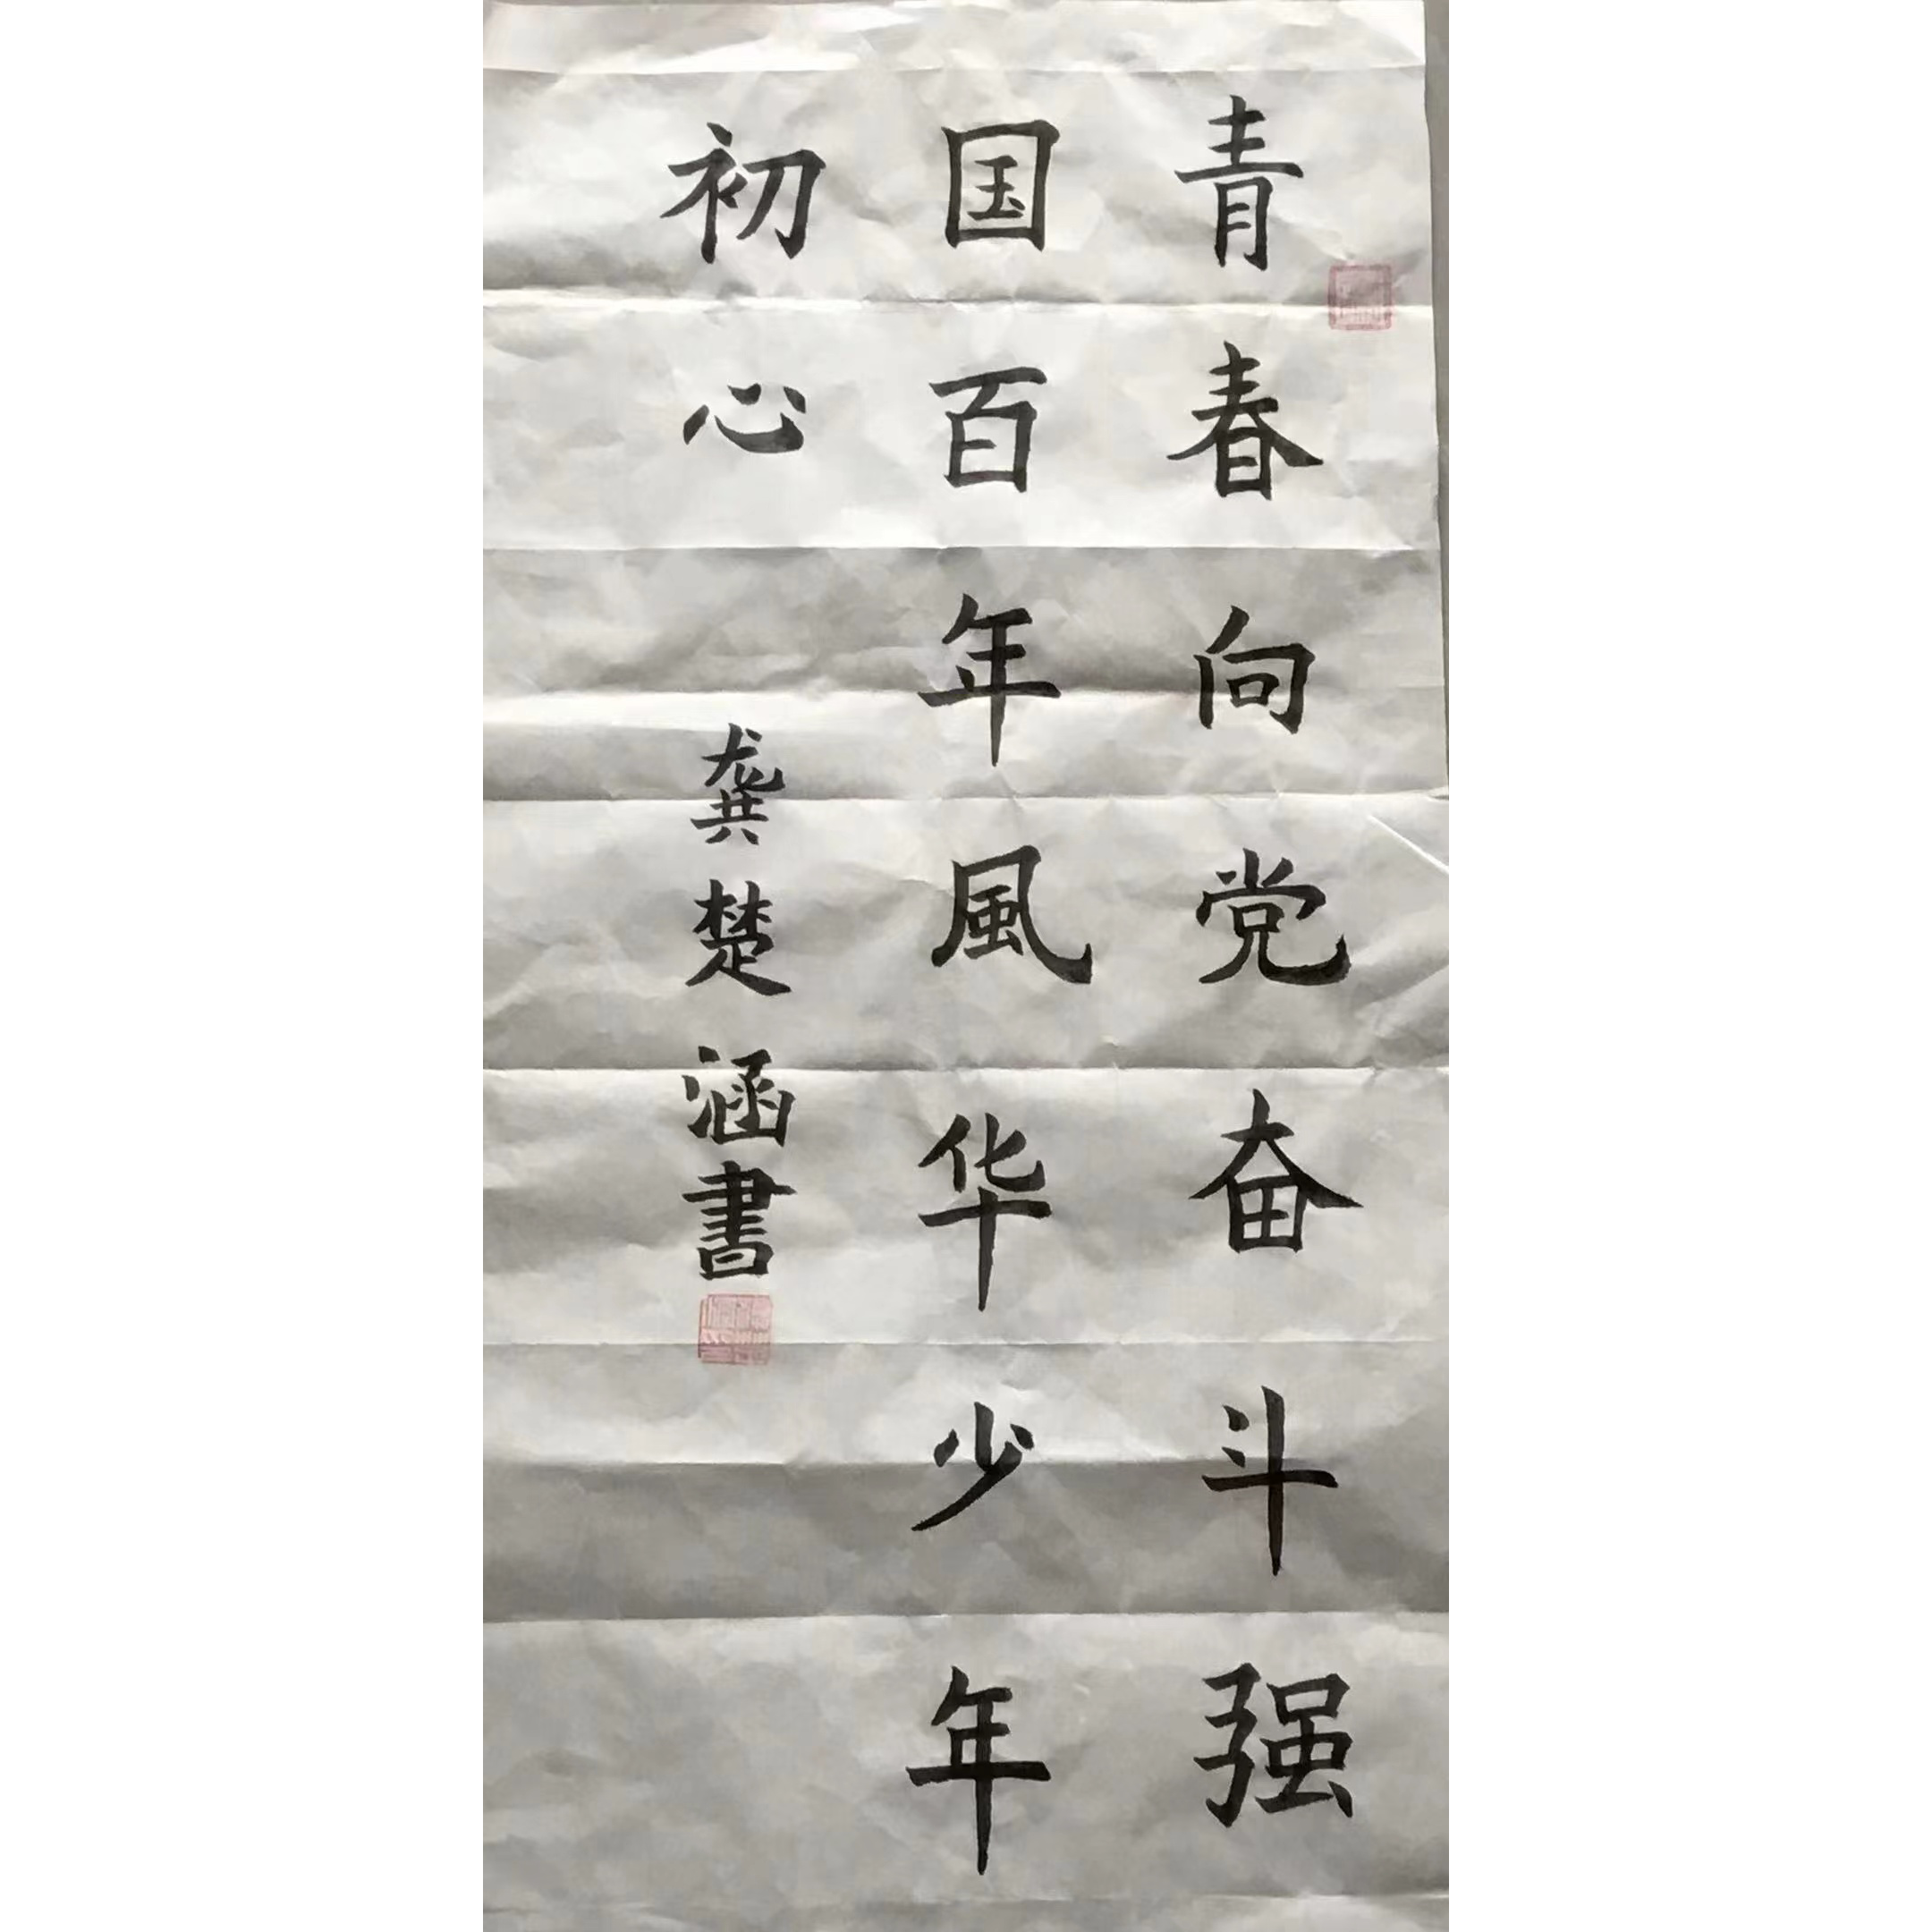 青春向党奋斗强
国百年風华少年
初心
龚楚涵書